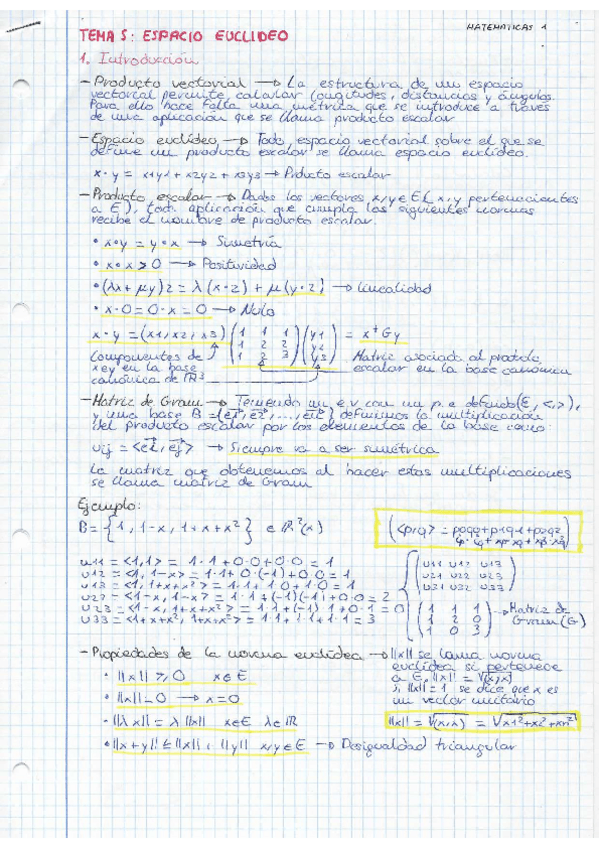 MATEMATICAS 1
TEMA 5: ESPACIO EUCLIDEO
1. Introducción
- Producto vectorial → La estructura de un espacio
vectorial permite calcular longitudes, distancias y ángulos.
Para ello hace falta una métrica que se introduce a través
de una aplicación que se llama producto escalar
- Espacio euclídeo → Todo espacio vectorial sobre el que se
define un producto escalar se llama espacio euclídeo.
x · y = x1y1 + x2y2 + x3y3 → Producto escalar
- Producto escalar → Dados los vectores x,y ∈ E (x,y pertenecientes
a E), toda aplicación que cumpla las siguientes normas
recibe el nombre de producto escalar.
• x·y = y·x → Simetría
• x·x ≥ 0 → Positividad
• (λx + μy)z = λ(x·z) + μ(y·z) → Linealidad
• x·0 = 0·x = 0 → Nulo
x·y = (x1, x2, x3) (1 1 1 / 1 2 2 / 1 2 3) (y1 / y2 / y3) = x^t G y
Componentes de x e y en la base canónica de ℝ³
Matriz asociada al producto escalar en la base canónica
- Matriz de Gram → Teniendo un e.v con un p.e definido (E, <,>),
y una base B = {e1, e2, ..., en} definimos la multiplicación
del producto escalar por los elementos de la base como:
uij = <ei, ej> → Siempre va a ser simétrica
La matriz que obtenemos al hacer estas multiplicaciones
se llama matriz de Gram
Ejemplo:
B = {1, 1-x, 1+x+x²} ∈ ℝ²(x)
(<p,q> = p0q0 + p1q1 + p2q2)
u11 = <1,1> = 1·1 + 0·0 + 0·0 = 1
u12 = <1, 1-x> = 1·1 + 0·(-1) + 0·0 = 1
u13 = <1, 1+x+x²> = 1·1 + 1·0 + 1·0 = 1
u22 = <1-x, 1-x> = 1·1 + (-1)(-1) + 0·0 = 2
u23 = <1-x, 1+x+x²> = 1·1 + (-1)·1 + 0·1 = 0
u33 = <1+x+x², 1+x+x²> = 1·1 + 1·1 + 1·1 = 3
(u11 u12 u13 / u21 u22 u23 / u31 u32 u33)
(1 1 1 / 1 2 0 / 1 0 3) → Matriz de Gram (G)
- Propiedades de la norma euclídea → ||x|| se llama norma
euclídea si pertenece
a E, ||x|| = √(x,x)
si ||x|| = 1 se dice que x es
un vector unitario
• ||x|| ≥ 0 x∈E
• ||x|| = 0 → x=0
• ||λx|| = λ||x|| x∈E λ∈ℝ
• ||x+y|| ≤ ||x|| + ||y|| x,y∈E → Desigualdad triangular
||x|| = √(x,x) = √x1²+x2²+xn²